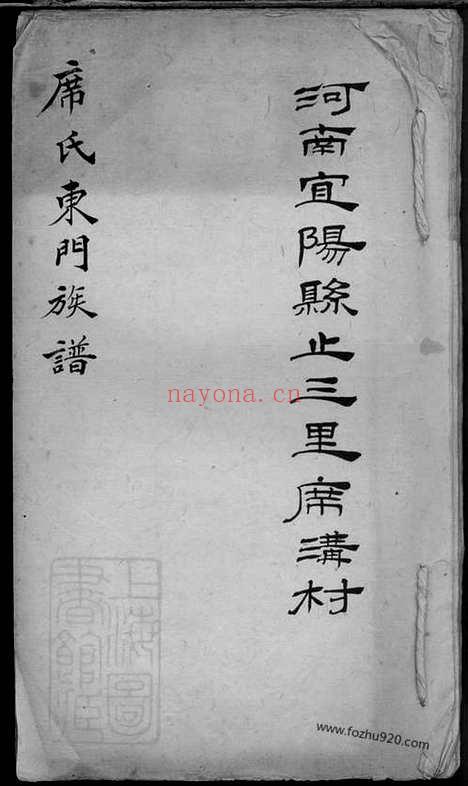 河南宜陽縣止三里席溝村
席氏東門族譜
nayona.cn
上海圖
書館藏
www.fozhu920.com